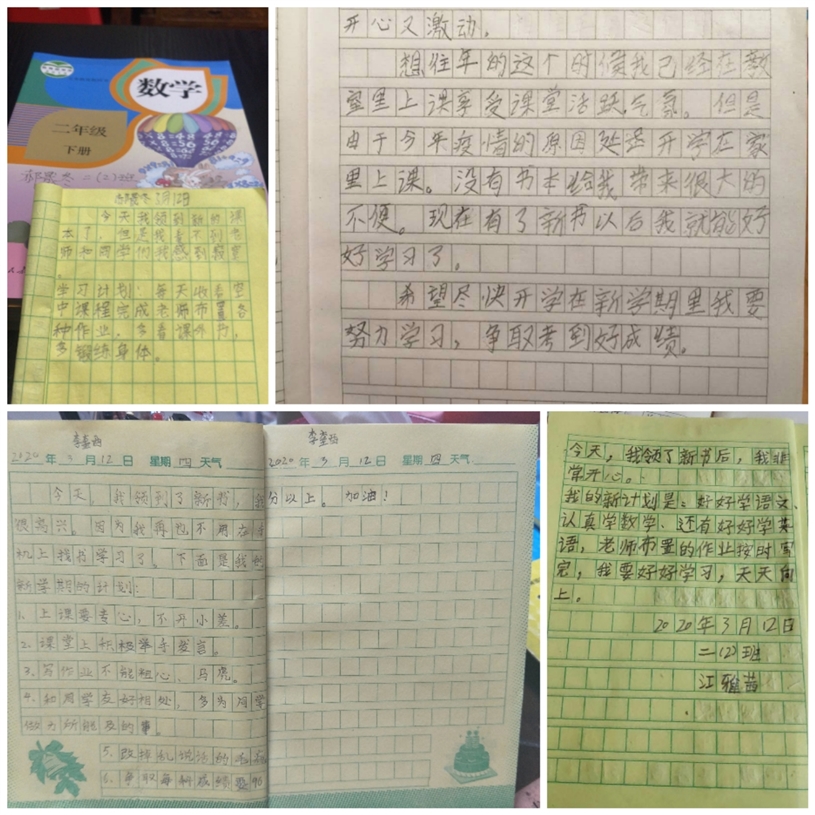 数学
二年级
下册
二(2)班
3月12日
今天我领到新的课
本了，但是我看不到老
师和同学们我感到
学习计划：每天收看空
中课程完成老师布置各
种作业，多看课外书，
多锻练身体。
开心又激动，
想往年的这个时候我已经在教
室里上课享受课堂活跃气氛，但是
由于今年疫情的原因延迟开学在家
里上课。没有书本给我带来很大的
不便。现在有了新书以后我就能好
好学习了。
希望尽快开学在新学期里我要
努力学习，争取考到好成绩。
2020年3月12日 星期四 天气
今天，我领到了新书，我
很高兴。因为我再也不用在手
机上找书学习了。下面是我的
新学期的计划：
1.上课要专心，不开小差。
2.课堂上积极举手发言。
3.写作业不能粗心、马虎。
4.和同学友好相处，多为同学
做力所能及的事。
5.改掉乱说话的毛
6.争取每科成绩要90
2020年3月12日 星期四 天气
分以上。加油！
今天，我领了新书后，我非
常开心。
我的新计划是：好好学语文、
认真学数学、还有好好学英
语，老师布置的作业按时写
完，我要好好学习，天天向
上。
2020年3月12日
二(2)班
江雅茜